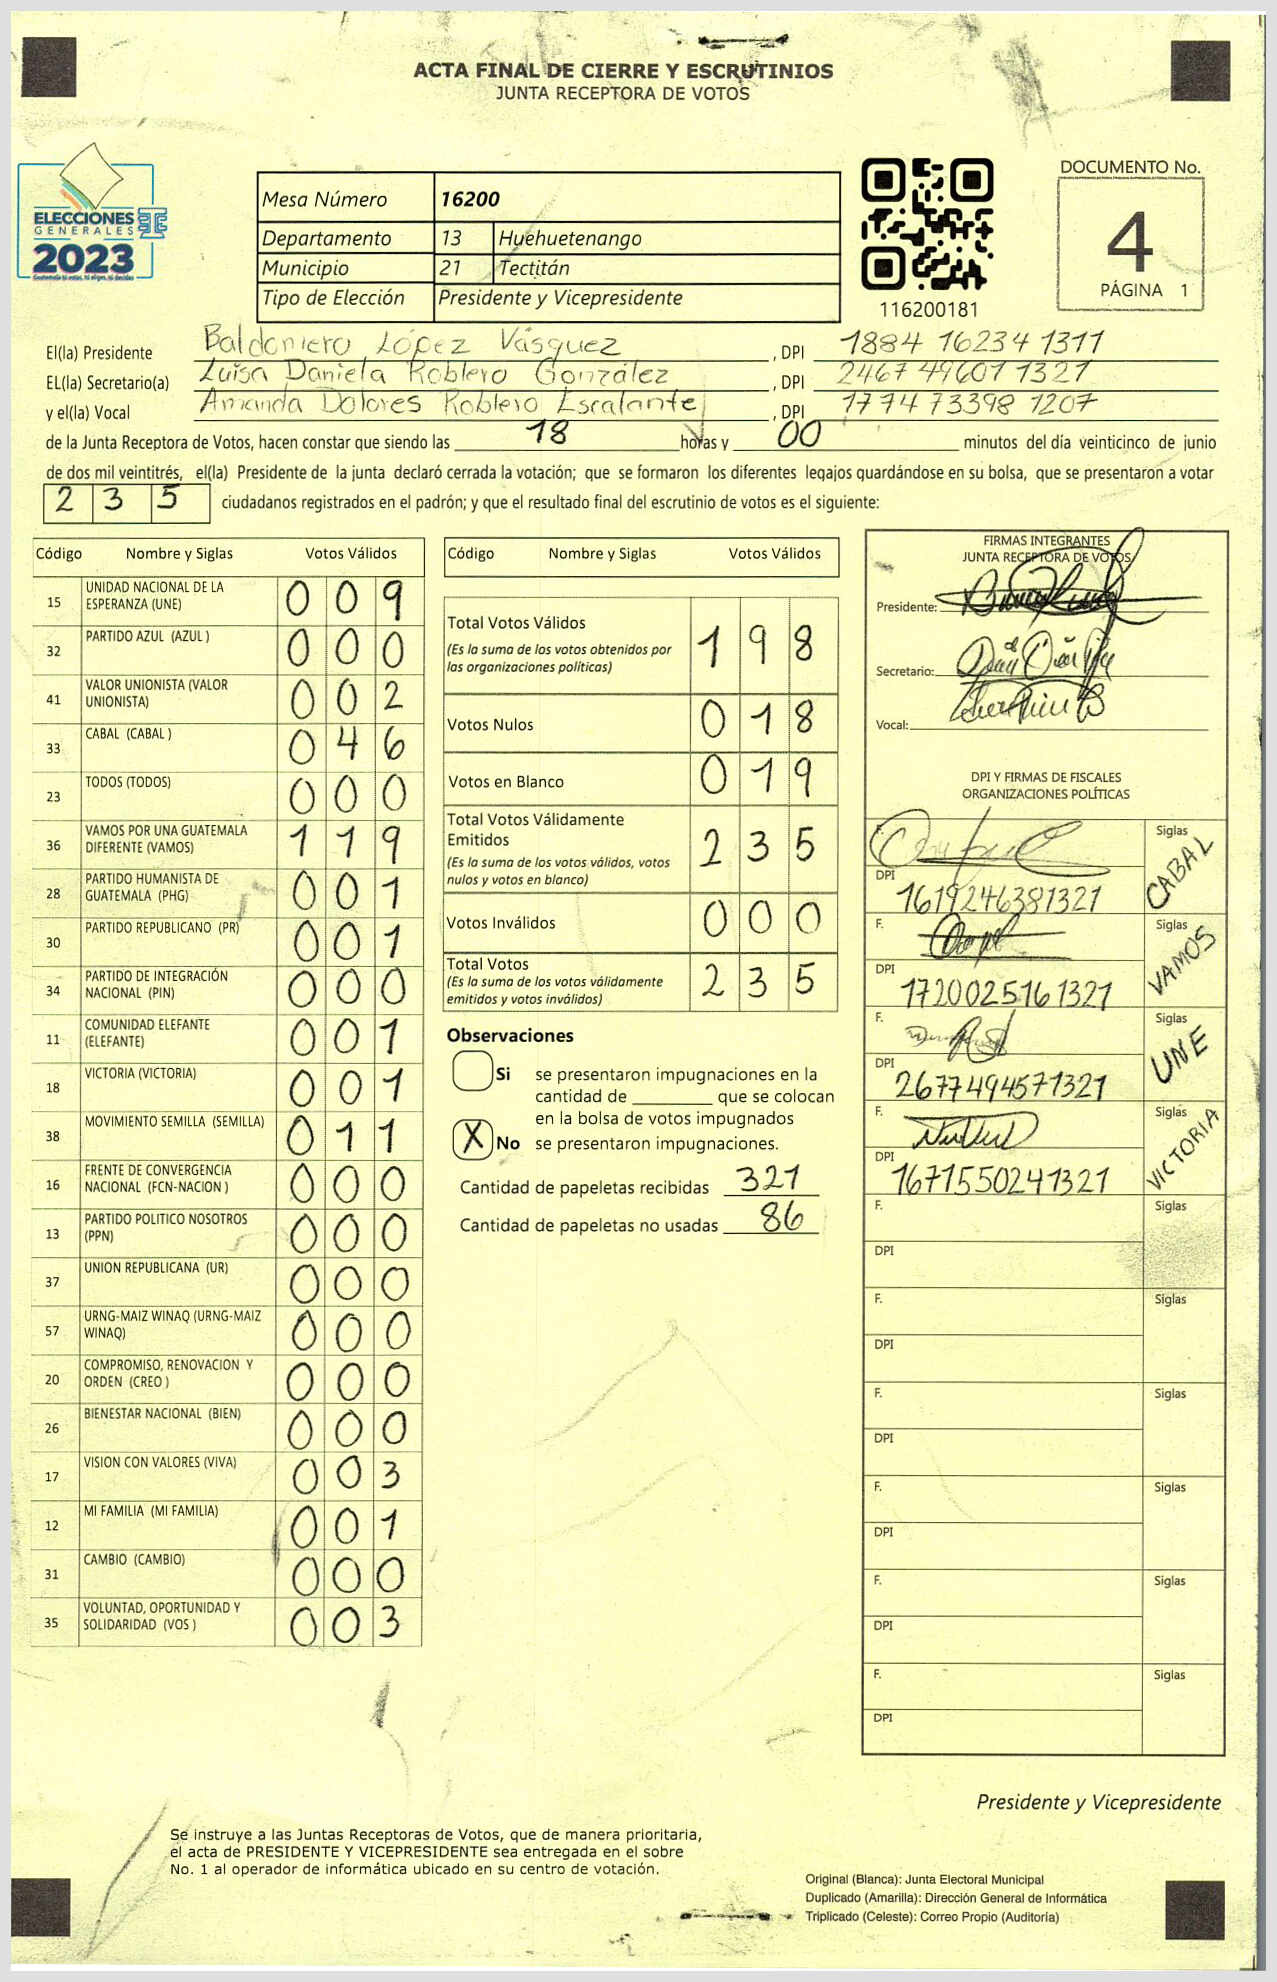 ACTA FINAL DE CIERRE Y ESCRUTINIOS
JUNTA RECEPTORA DE VOTOS
ELECCIONES
GENERALES
2023
Mesa Número 16200
Departamento 13 Huehuetenango
Municipio 21 Tectitán
Tipo de Elección Presidente y Vicepresidente
116200181
DOCUMENTO No.
4
PÁGINA 1
El(la) Presidente Baldomero López Vásquez , DPI 1884 16234 1311
EL(la) Secretario(a) Luisa Daniela Roblero González , DPI 2467 49601 1321
y el(la) Vocal Amanda Dolores Roblero Escalante , DPI 1774 73398 1207
de la Junta Receptora de Votos, hacen constar que siendo las 18 horas y 00 minutos del día veinticinco de junio
de dos mil veintitrés, el(la) Presidente de la junta declaró cerrada la votación; que se formaron los diferentes legajos quardándose en su bolsa, que se presentaron a votar
2 3 5 ciudadanos registrados en el padrón; y que el resultado final del escrutinio de votos es el siguiente:
Código Nombre y Siglas Votos Válidos
15 UNIDAD NACIONAL DE LA ESPERANZA (UNE) 0 0 9
32 PARTIDO AZUL (AZUL ) 0 0 0
41 VALOR UNIONISTA (VALOR UNIONISTA) 0 0 2
33 CABAL (CABAL ) 0 4 6
23 TODOS (TODOS) 0 0 0
36 VAMOS POR UNA GUATEMALA DIFERENTE (VAMOS) 1 1 9
28 PARTIDO HUMANISTA DE GUATEMALA (PHG) 0 0 1
30 PARTIDO REPUBLICANO (PR) 0 0 1
34 PARTIDO DE INTEGRACIÓN NACIONAL (PIN) 0 0 0
11 COMUNIDAD ELEFANTE (ELEFANTE) 0 0 1
18 VICTORIA (VICTORIA) 0 0 1
38 MOVIMIENTO SEMILLA (SEMILLA) 0 1 1
16 FRENTE DE CONVERGENCIA NACIONAL (FCN-NACION ) 0 0 0
13 PARTIDO POLITICO NOSOTROS (PPN) 0 0 0
37 UNION REPUBLICANA (UR) 0 0 0
57 URNG-MAIZ WINAQ (URNG-MAIZ WINAQ) 0 0 0
20 COMPROMISO, RENOVACION Y ORDEN (CREO ) 0 0 0
26 BIENESTAR NACIONAL (BIEN) 0 0 0
17 VISION CON VALORES (VIVA) 0 0 3
12 MI FAMILIA (MI FAMILIA) 0 0 1
31 CAMBIO (CAMBIO) 0 0 0
35 VOLUNTAD, OPORTUNIDAD Y SOLIDARIDAD (VOS ) 0 0 3
Código Nombre y Siglas Votos Válidos
Total Votos Válidos 1 9 8
(Es la suma de los votos obtenidos por
las organizaciones políticas)
Votos Nulos 0 1 8
Votos en Blanco 0 1 9
Total Votos Válidamente
Emitidos 2 3 5
(Es la suma de los votos válidos, votos
nulos y votos en blanco)
Votos Inválidos 0 0 0
Total Votos 2 3 5
(Es la suma de los votos válidamente
emitidos y votos inválidos)
Observaciones
Si se presentaron impugnaciones en la
cantidad de ________ que se colocan
en la bolsa de votos impugnados
X No se presentaron impugnaciones.
Cantidad de papeletas recibidas 321
Cantidad de papeletas no usadas 86
FIRMAS INTEGRANTES
JUNTA RECEPTORA DE VOTOS
Presidente:
Secretario:
Vocal:
DPI Y FIRMAS DE FISCALES
ORGANIZACIONES POLÍTICAS
F. Siglas CABAL
DPI 1619246381321
F. Siglas VAMOS
DPI 1720025161321
F. Siglas UNE
DPI 2677494571321
F. Siglas VICTORIA
DPI 1671550241321
F. Siglas
DPI
F. Siglas
DPI
F. Siglas
DPI
F. Siglas
DPI
F. Siglas
DPI
F. Siglas
DPI
Presidente y Vicepresidente
Se instruye a las Juntas Receptoras de Votos, que de manera prioritaria,
el acta de PRESIDENTE Y VICEPRESIDENTE sea entregada en el sobre
No. 1 al operador de informática ubicado en su centro de votación.
Original (Blanca): Junta Electoral Municipal
Duplicado (Amarilla): Dirección General de Informática
Triplicado (Celeste): Correo Propio (Auditoría)